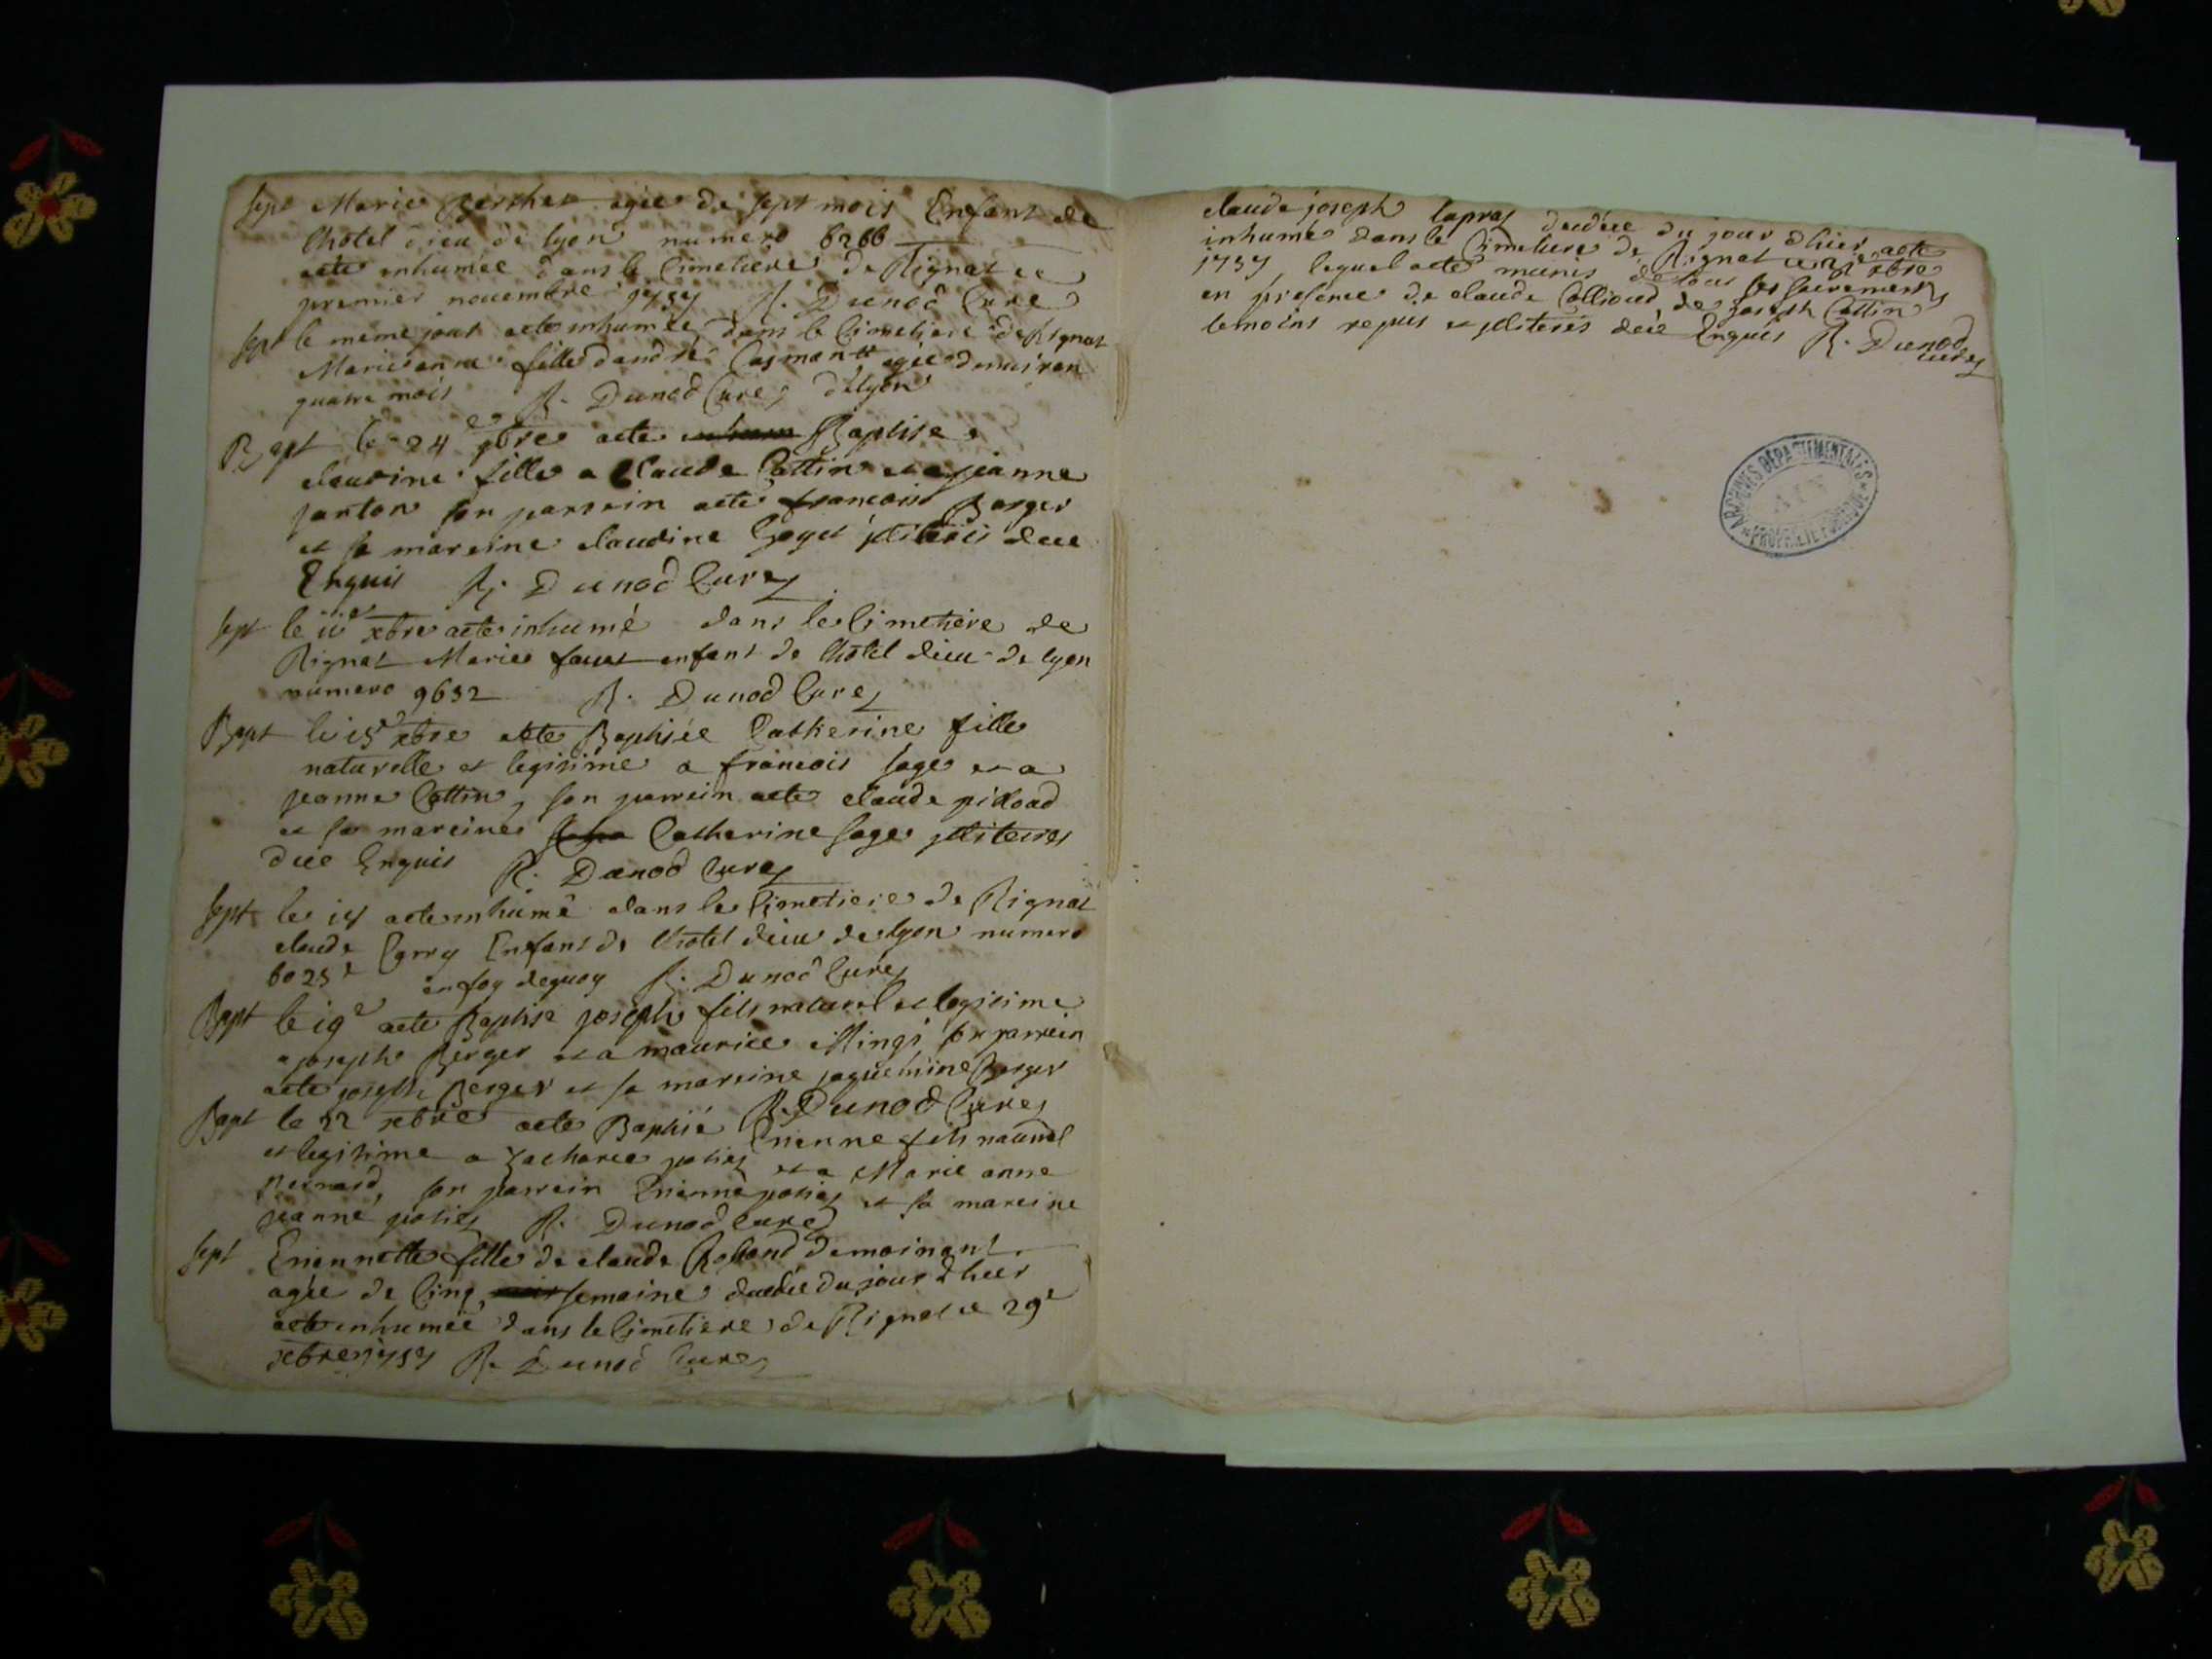 sept Marie agée de sept mois Enfant de
lhotel dieu de lyon numero 6266
aété inhumée dans le Cimetiere de Rignat ce
premier nouembre 1757 R. Dunod Curé
sept le meme jour aeté inhumée dans le Cimetiere de Rignat
Marieanne fille dandré agée denuiron
quatre mois R. Dunod Curé de lyon
Bapt le 24e 9bre aeté Baptisee
claudine fille a Claude Cottin et a jeanne
janton son parrein aeté francois Berger
et sa mareine claudine Goyet jlliterés deue
Enquis R. Dunod Curé
sept le iie xbre aeté inhumé dans le Cimetiere de
Rignat Marie enfant de lhotel dieu de lyon
numero 9632 R. Dunod Curé
Bapt le i5e xbre aeté Baptisée Catherine fille
naturelle et legitime a francois sage et a
jeanne Cottin, son parrein aeté claude pilloud
et sa mareine Catherine sage jlliterés
due Enquis R. Dunod Curé
sept le i7 aeté inhumé dans le Cimetiere de Rignat
claude Enfant de lhotel dieu de lyon numero
6025e en foy dequoy R. Dunod Curé
Bapt le i9e aeté Baptisé joseph fils naturel et legitime
a joseph Berger et a maurice Mingi, son parrein
aeté joseph Berger et sa mareine jaquemine Berger
R. Dunod Curé
Bapt le 22 xbre aeté Baptisé Etienne fils naturel
et legitime a Zacharie et a Marie anne
son parrein Etienne et sa mareine
jeanne R. Dunod Curé
sept Etiennette fille de claude
agée de Cinq semaine decedée du jour dhier
aeté inhumée dans le Cimetiere de Rignat ce 29e
xbre 1757 R. Dunod Curé
claude joseph lapras decedée du jour dhier aeté
inhumé dans le Cimetiere de Rignat ce xbre
1757, lequel aeté munis de tous ses sacrements
en presence de claude Collioud de joseph Cottin
temoins requis et jlliterés deüe Enquis R. Dunod
curé
ARCHIVES DEPARTEMENTALES
AIN
PROPRIETE PUBLIQUE